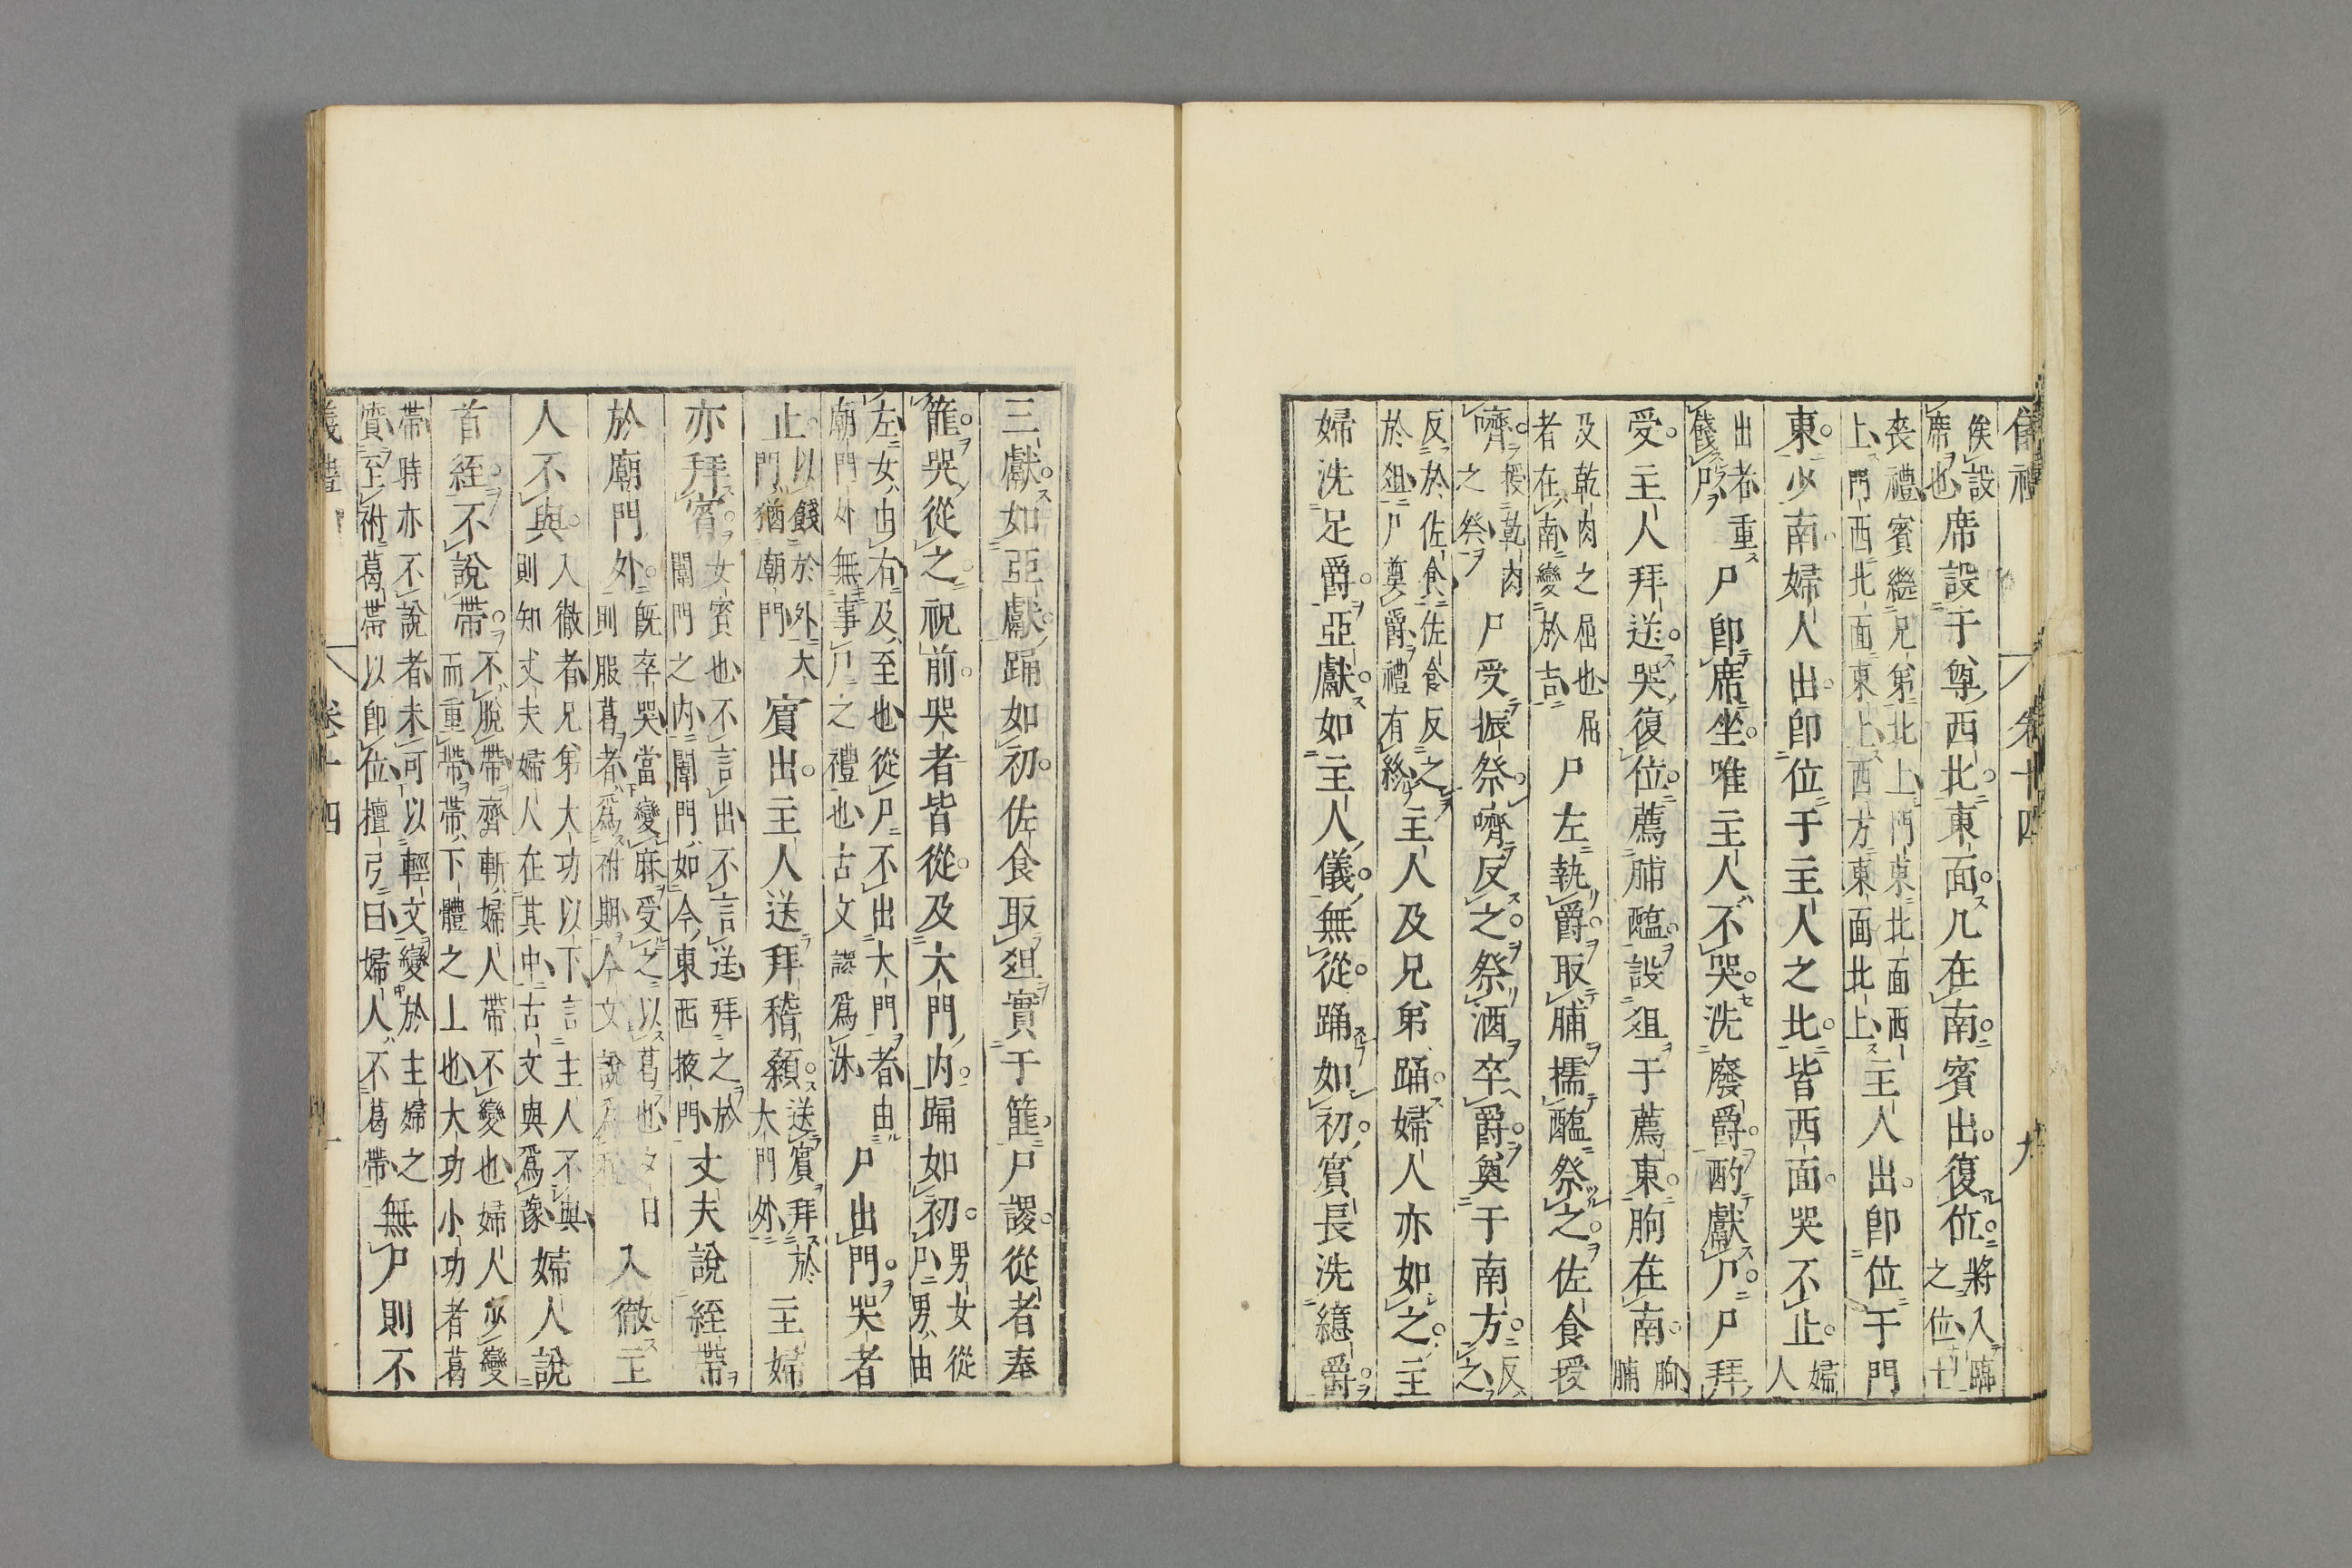 儀禮 卷十四 九
俟設
席也
席設于尊西北東面几在南賓出復位
將入臨
之位士
喪禮賓繼兄弟北上門東北面西
上門西北面東上西方東面北上
主人出即位于門
東少南婦人出即位于主人之北皆西面哭不止
婦
人
出者重
餞尸
尸即席坐唯主人不哭洗廢爵酌獻尸尸拜
受主人拜送哭復位薦脯醢設俎于薦東朐在南
朐
脯
及乾肉之屈也屈
者在南變於吉
尸左執爵取脯擩醢祭之佐食授
嚌
授乾肉
之祭
尸受振祭嚌反之祭酒卒爵奠于南方
反
之
反於佐食佐食反之
於俎尸奠爵禮有終
主人及兄弟踊婦人亦如之主
婦洗足爵亞獻如主人儀無從踊如初賓長洗繶爵
三獻如亞獻踊如初佐食取俎實于篚尸謖從者奉
篚哭從之祝前哭者皆從及大門内踊如初
男女從
尸男由
左女由右及至也從尸不出大門者由
廟門外無事尸之禮也古文謖爲休
尸出門哭者
止
以餞於外大
門猶廟門
賓出主人送拜稽顙
送賓拜於
大門外
主婦
亦拜賓
女賓也不言出不言送拜之於
闈門之内闈門如今東西掖門
丈夫說絰帶
於廟門外
既卒哭當變麻受之以葛也夕日
則服葛者爲祔期今文說爲稅
入徹主
人不與
入徹者兄弟大功以下言主人不與
則知丈夫婦人在其中古文與爲豫
婦人說
首絰不說帶
不脫帶齊斬婦人帶不變也婦人少變
而重帶帶下體之上也大功小功者葛
帶時亦不說者未可以輕文變於主婦之
質至祔葛帶以即位檀弓曰婦人不葛帶
無尸則不
儀禮 卷十四